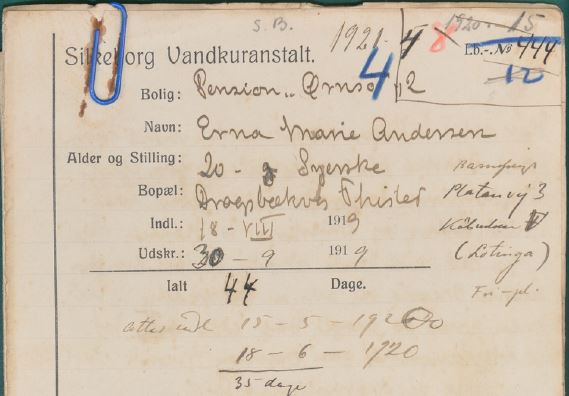 S. B.
1920. 15
1921. 4 8
Silkeborg Vandkuranstalt.
Lb.-No 444
4
12
Bolig: Pension „Ørnsø" 2
Navn: Erna Marie Andersen
Alder og Stilling: 20 - Syerske
Bopæl: Thisted
Platanvej 3
Indl.: 18 - VIII 1919
København V
Udskr.: 30 - 9 1919
Ialt 44 Dage.
15 - 5 - 1920
18 - 6 - 1920
35 dage